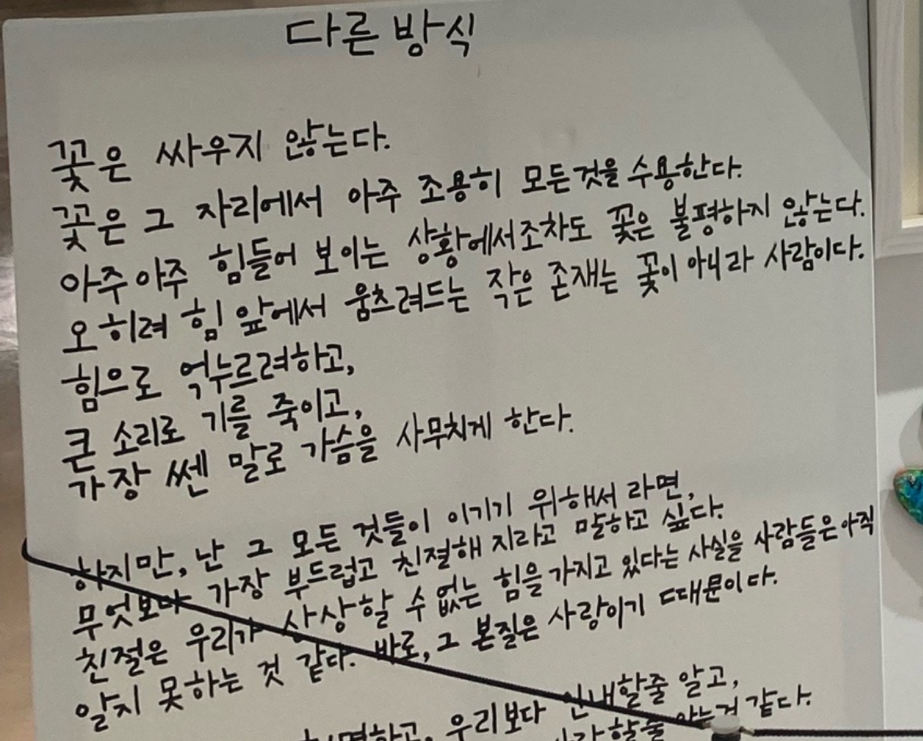 다른 방식
꽃은 싸우지 않는다.
꽃은 그 자리에서 아주 조용히 모든것을 수용한다.
아주 아주 힘들어 보이는 상황에서조차도 꽃은 불평하지 않는다.
오히려 힘 앞에서 움츠려드는 작은 존재는 꽃이 아니라 사람이다.
힘으로 억누르려하고,
큰 소리로 기를 죽이고,
가장 쎈 말로 가슴을 사무치게 한다.
하지만, 난 그 모든 것들이 이기기 위해서 라면,
무엇보다 가장 부드럽고 친절해 지라고 말하고 싶다.
친절은 우리가 상상할 수 없는 힘을 가지고 있다는 사실을 사람들은 아직
알지 못하는 것 같다. 바로, 그 본질은 사랑이기 때문이다.
우리보다 인내할줄 알고,
같다.